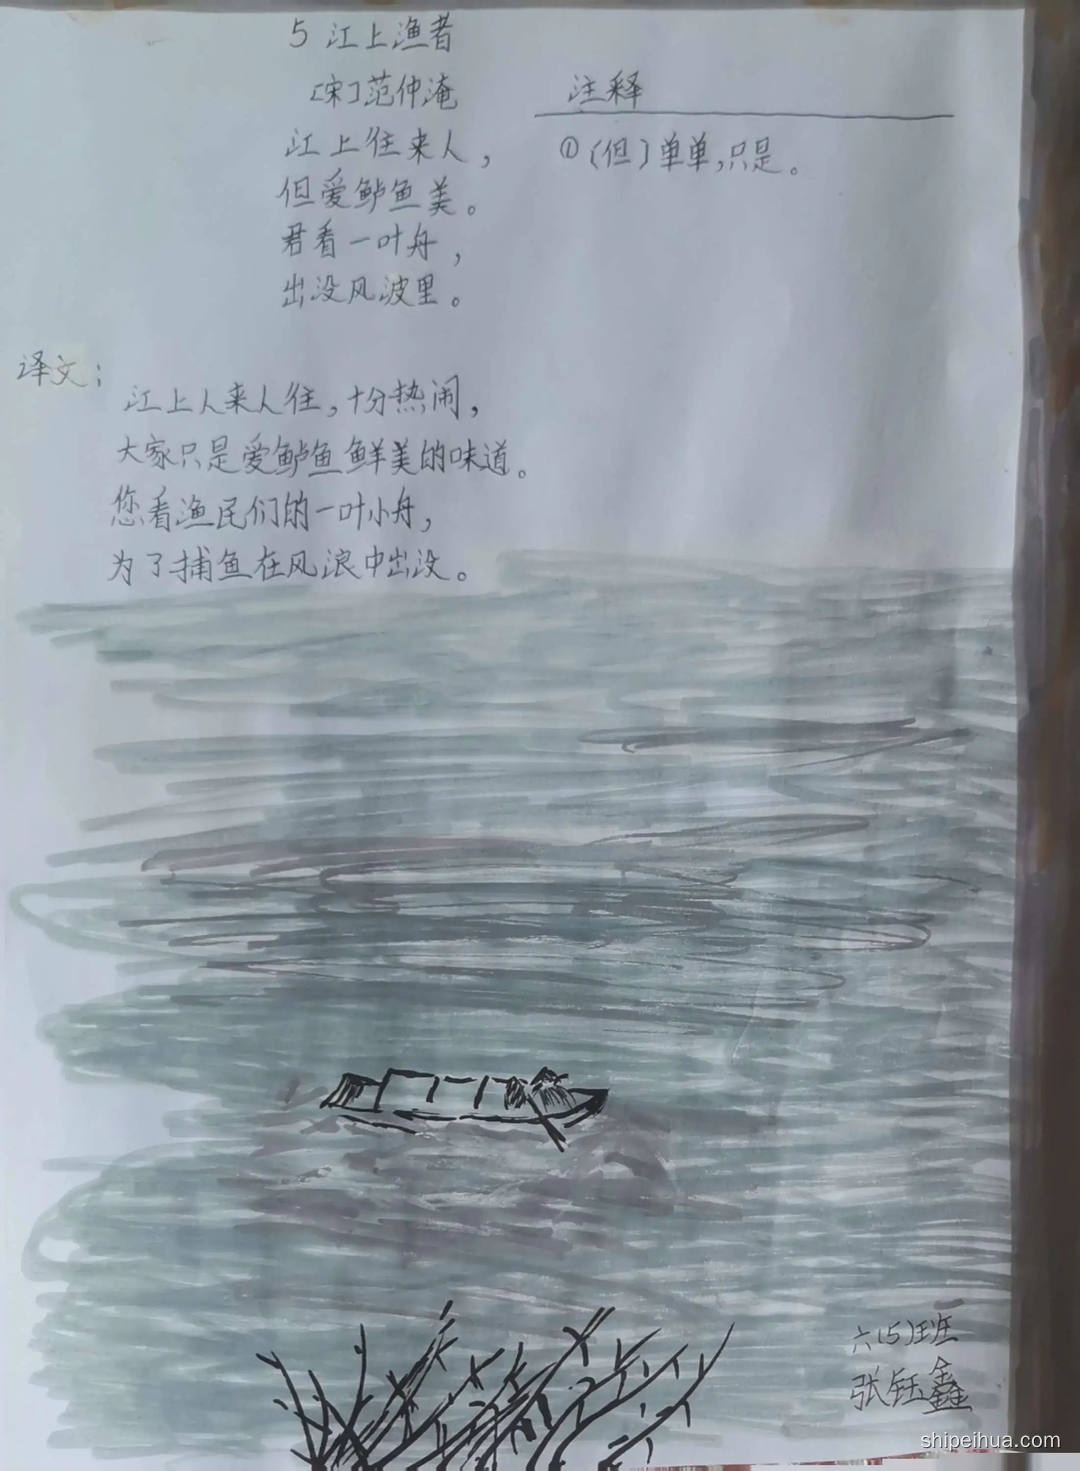 5 江上渔者
[宋]范仲淹
江上往来人，
但爱鲈鱼美。
君看一叶舟，
出没风波里。
注释
①(但)单单,只是。
译文：
江上人来人往，十分热闹，
大家只是爱鲈鱼鲜美的味道。
您看渔民们的一叶小舟，
为了捕鱼在风浪中出没。
六(5)班
张钰鑫
shipeihua.com